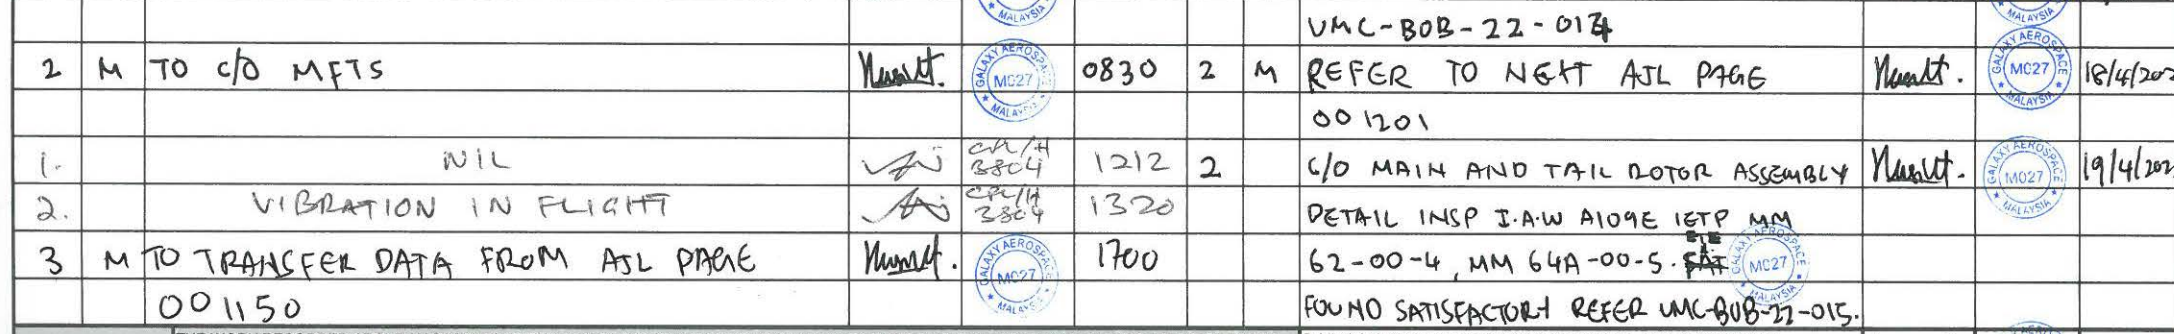 MALAYSIA MALAYSIA
UMC-BOB-22-014
2 M TO C/O MFTS GALAXY AEROSPACE MC27 MALAYSIA 0830 2 M REFER TO NEXT AJL PAGE GALAXY AEROSPACE MC27 MALAYSIA 18/4/202
001201
1. NIL CPL/H 3804 1212 2 C/O MAIN AND TAIL ROTOR ASSEMBLY GALAXY AEROSPACE MC27 MALAYSIA 19/4/202
2. VIBRATION IN FLIGHT CPL/H 3804 1320 DETAIL INSP I.A.W A109E IETP MM
3 M TO TRANSFER DATA FROM AJL PAGE GALAXY AEROSPACE MC27 MALAYSIA 1700 62-00-4, MM 64A-00-5. GALAXY AEROSPACE MC27 MALAYSIA
001150 FOUND SATISFACTORY REFER UMC-BOB-22-015.